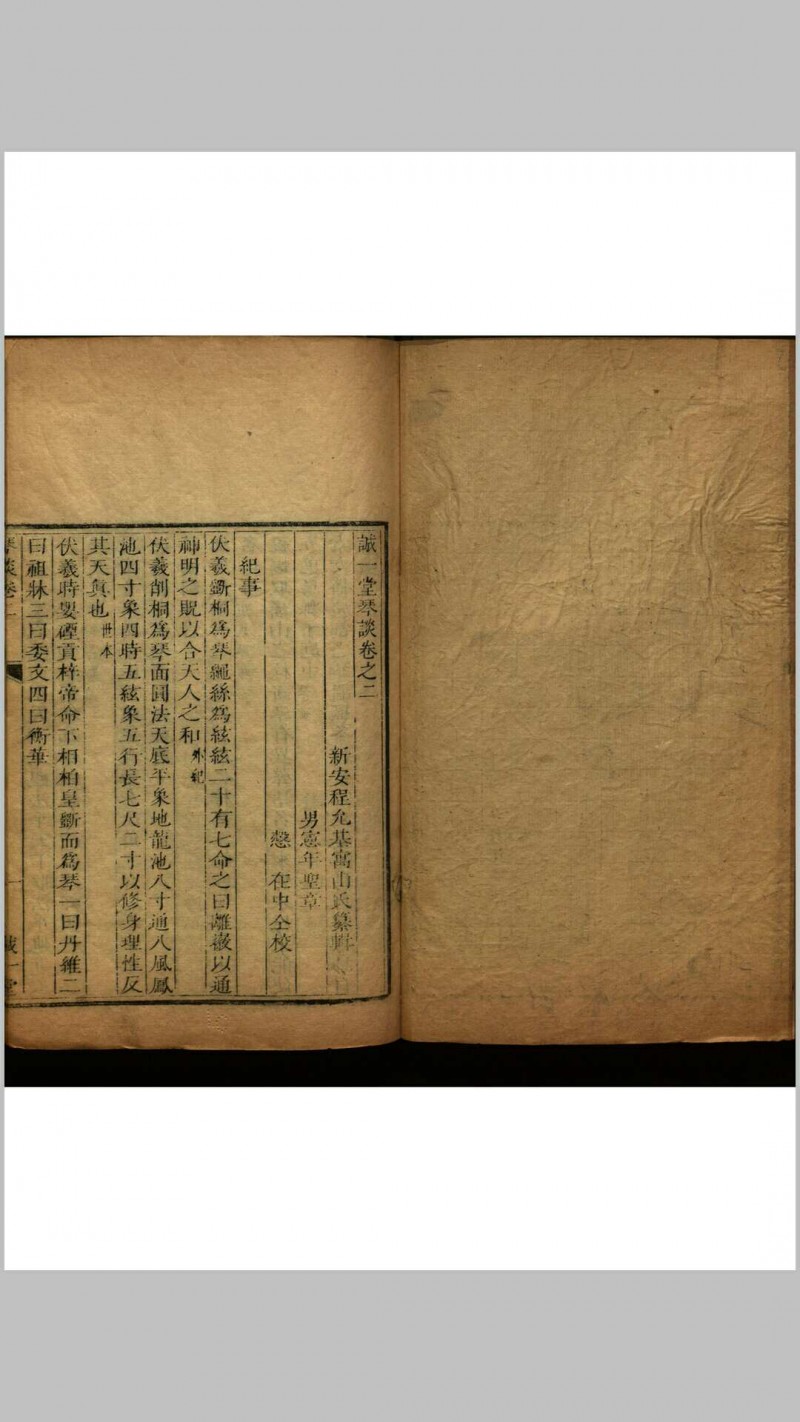 誠一堂琴談卷之二
新安程允基寓山氏纂輯
男憲年聖章
愨 在中仝校
紀事
伏羲斲桐為琴繩絲為絃絃二十有七命之曰離徽以通
神明之貺以合天人之和外紀
伏羲削桐為琴面圓法天底平象地龍池八寸通八風鳳
池四寸象四時五絃象五行長七尺二寸以修身理性反
其天真也世本
伏羲時嬰磹貢梓帝命下相柏皇斲而為琴一曰丹維二
曰祖牀三曰委文四曰衡華
琴談卷二
一
誠一堂